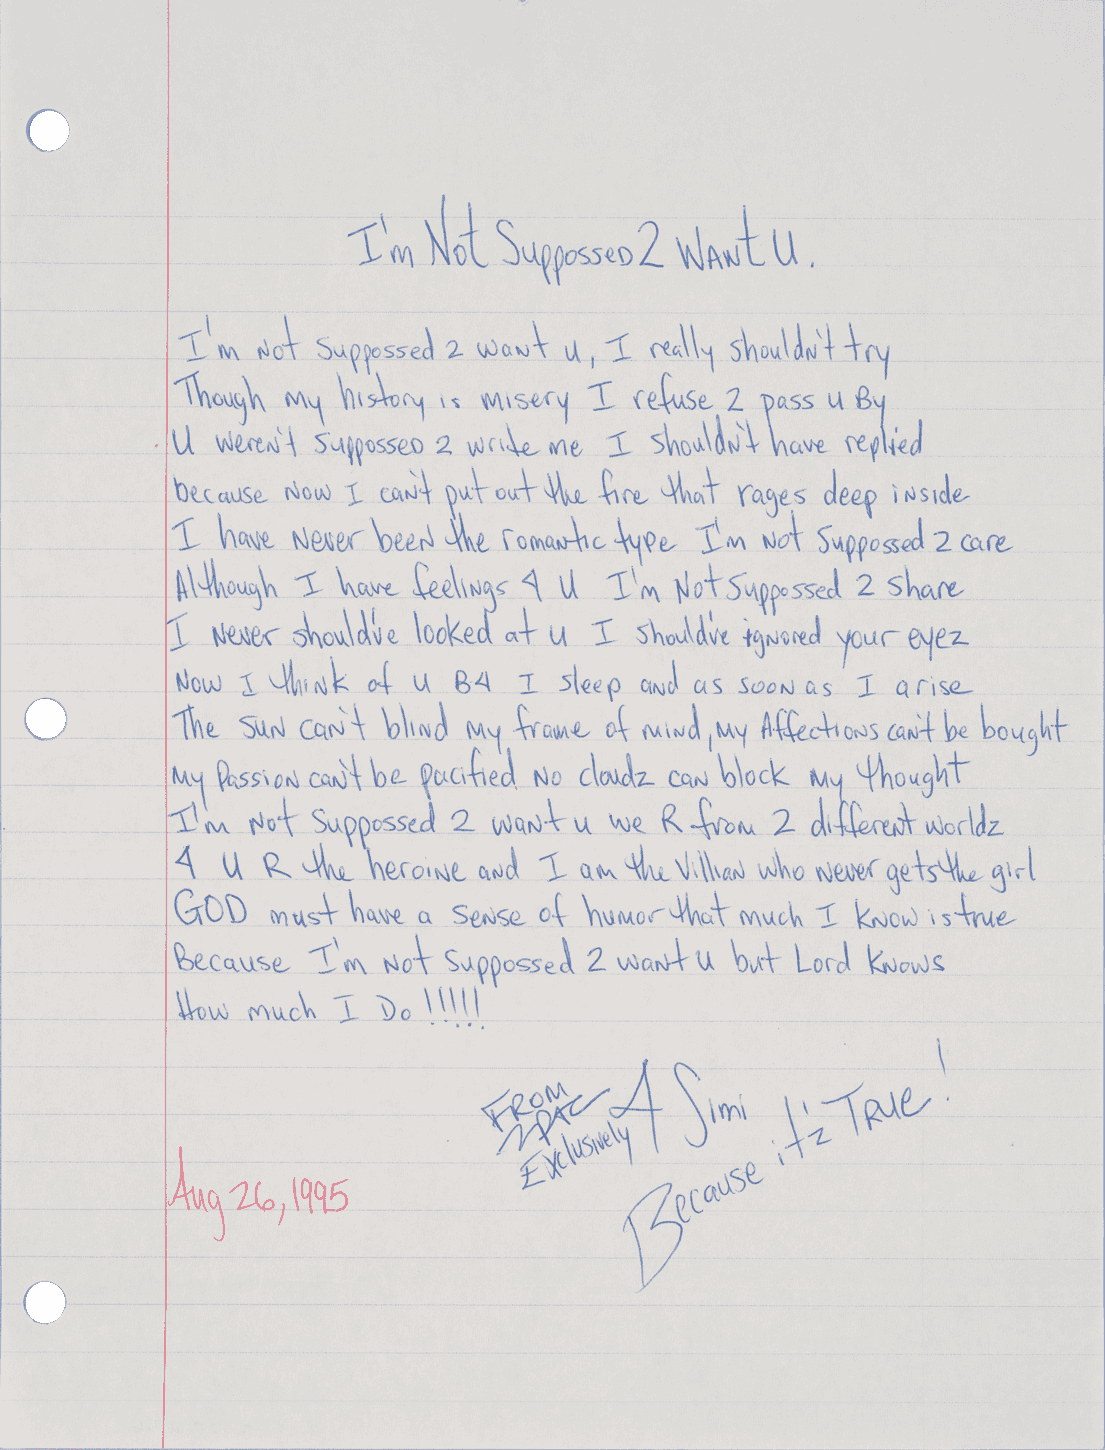 I'm Not Suppossed 2 Want U.
I'm not suppossed 2 want u, I really shouldn't try
Though my history is misery I refuse 2 pass u By
U weren't suppossed 2 write me I shouldn't have replied
because now I can't put out the fire that rages deep inside
I have never been the romantic type I'm not suppossed 2 care
Although I have feelings 4 U I'm Not suppossed 2 share
I never should've looked at u I should've ignored your eyez
Now I think of u B4 I sleep and as soon as I arise
The sun can't blind my frame of mind, my Affections can't be bought
My Passion can't be pacified no cloudz can block my thought
I'm not suppossed 2 want u we R from 2 different worldz
4 U R the heroine and I am the Villian who never gets the girl
GOD must have a sense of humor that much I know is true
Because I'm not suppossed 2 want u but Lord Knows
How much I Do !!!!!
FROM 2PAC Exclusively 4 Simi
Because it'z TRUE!
Aug 26, 1995